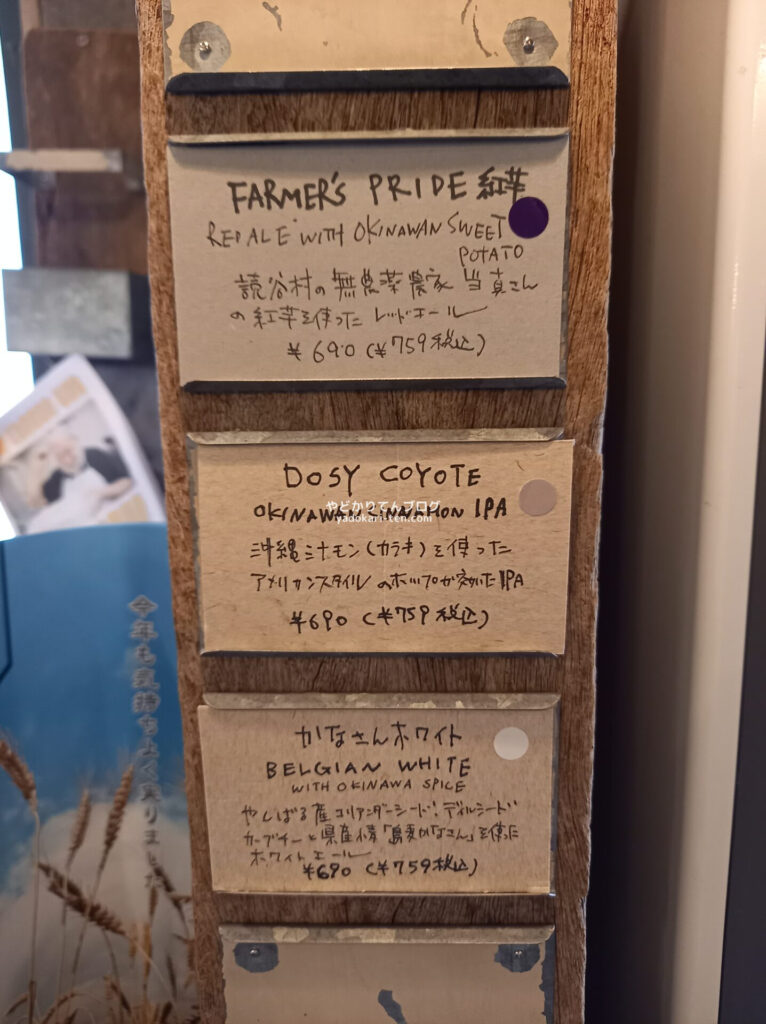 FARMER'S PRIDE 紅芋
RED ALE WITH OKINAWAN SWEET
POTATO
読谷村の無農薬農家 当真さん
の紅芋を使った レッドエール
¥690 (¥759税込)
DOSY COYOTE
OKINAWAN CINNAMON IPA
やどかりてんブログ
yadokaristen.com
沖縄シナモン(カラキ)を使った
アメリカンスタイル のホップが効いたIPA
¥690 (¥759税込)
かなさんホワイト
BELGIAN WHITE
WITH OKINAWA SPICE
やんばる産コリアンダーシード、ディルシード
カーブチーと県産小麦「島麦かなさん」を使った
ホワイトエール
¥690 (¥759税込)
今年も気持ちよく実りました